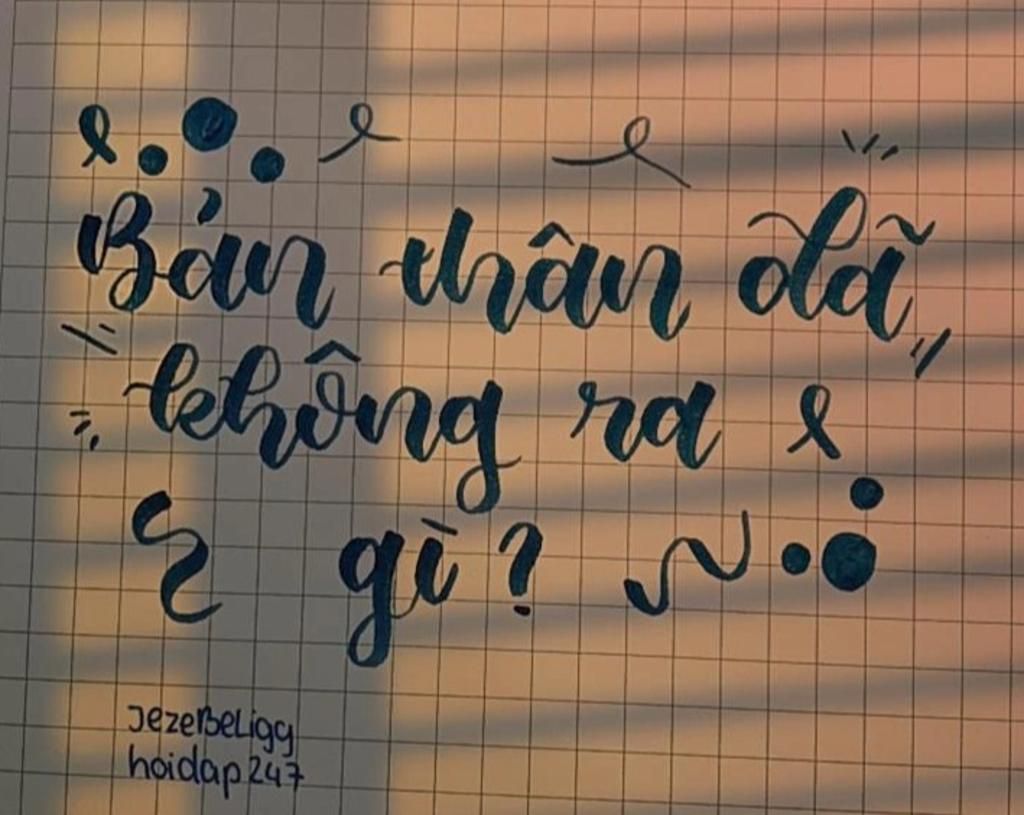 Bản thân đã
không ra
gì?
JezeBeLigg
hoidap247